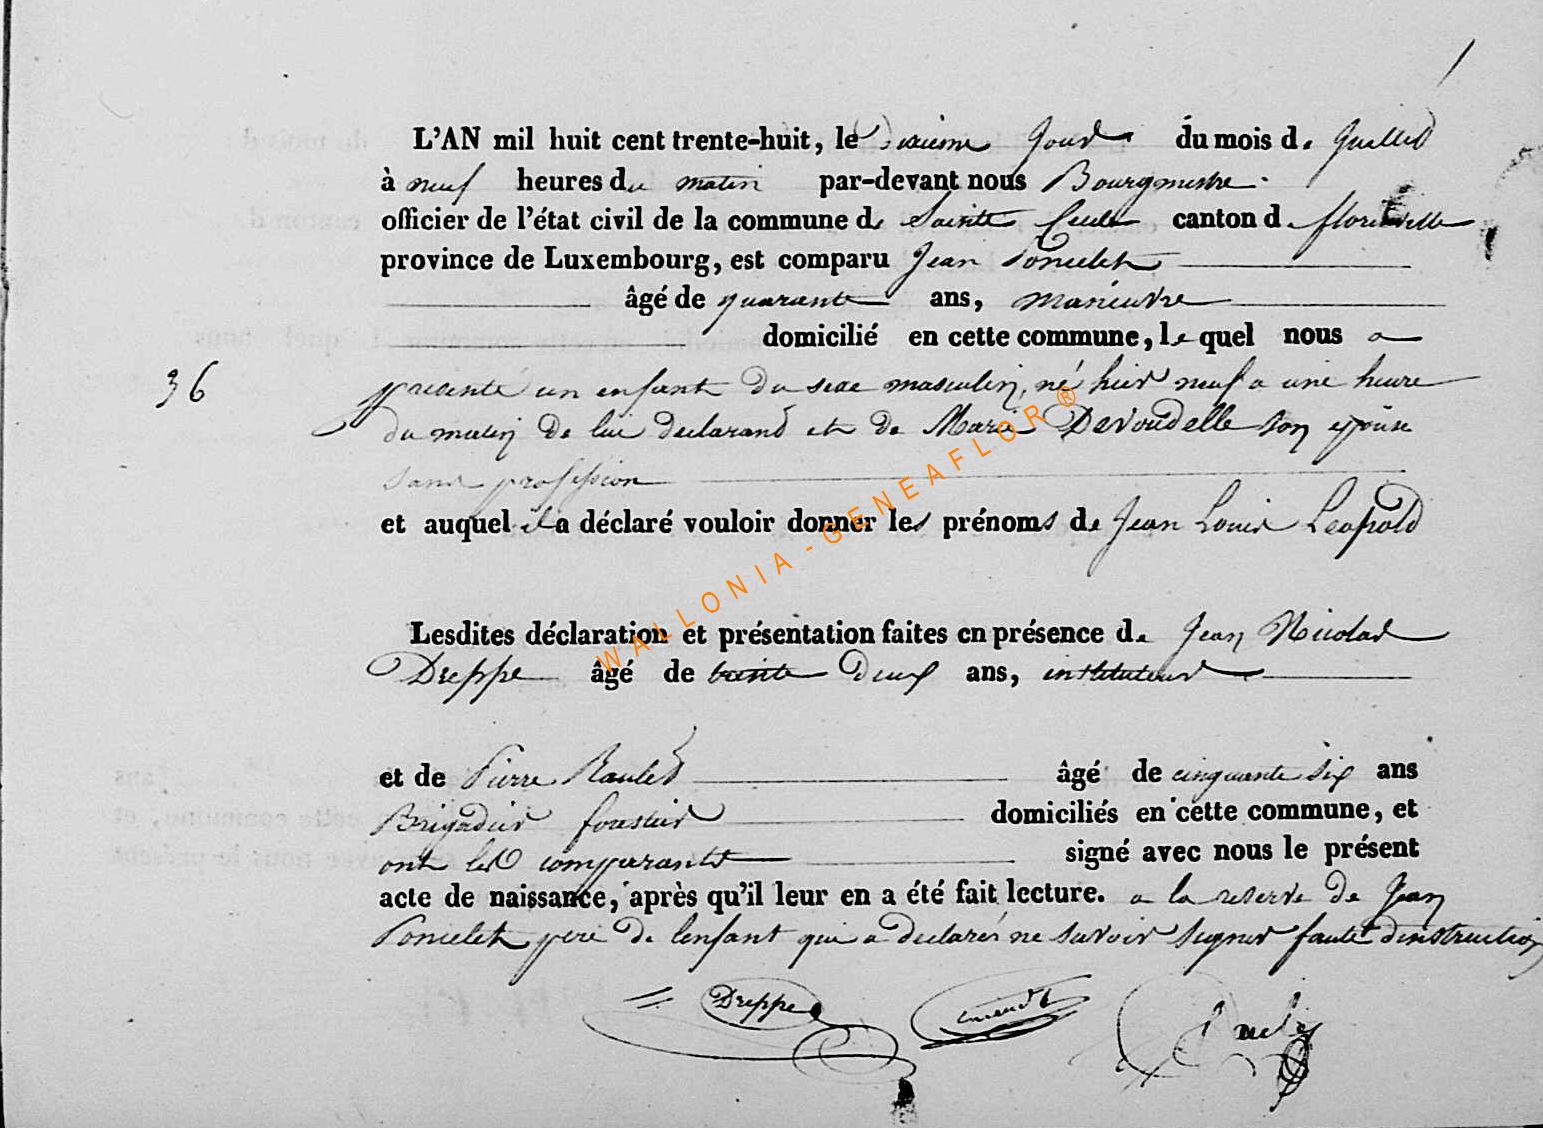 L'AN mil huit cent trente-huit, le dixieme Jour du mois de Juillet
à neuf heures du matin par-devant nous Bourgmestre
officier de l'état civil de la commune de Sainte Cecile canton d florenville
province de Luxembourg, est comparu Jean Poncelet
âgé de quarante ans, manœuvre
domicilié en cette commune, le quel nous a
36
presenté un enfant du sexe masculin, né hier neuf a une heure
du matin de lui declarand et de Marie Devoudelle son epouse
sans profession
et auquel il a déclaré vouloir donner les prénoms de Jean Louis Leopold
Lesdites déclaration et présentation faites en présence de Jean Nicolas
Dreppe âgé de trente deux ans, instituteur
et de Pierre Raulet âgé de cinquante six ans
Brigadier forestier domiciliés en cette commune, et
ont les comparants signé avec nous le présent
acte de naissance, après qu'il leur en a été fait lecture. a la reserve de Jean
Poncelet pere de lenfant qui a declaré ne savoir signer faute dinstruction
Dreppe
WALLONIA - GENEAFLOR ®